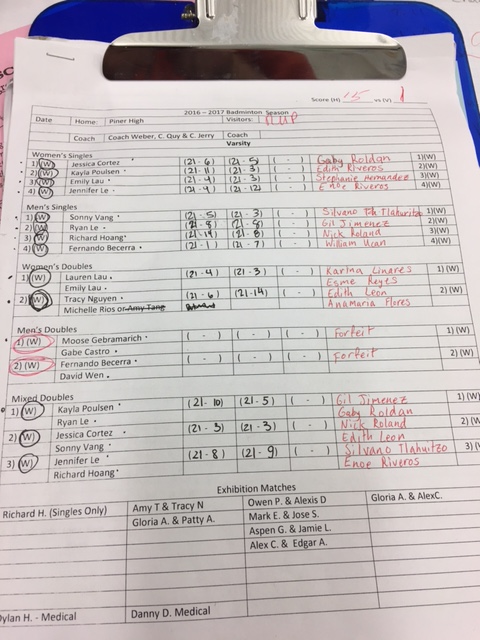 Score (H) 15 vs (V) 1
2016 – 2017 Badminton Season
Date Home: Piner High Visitors:
Coach Coach Weber, C. Quy & C. Jerry Coach
Varsity
Women's Singles
1) (W) Jessica Cortez (21 - 6) (21 - 5) ( - ) Gaby Roldan 1)(W)
2) (W) Kayla Poulsen (21 - 11) (21 - 3) ( - ) Edith Riveros 2)(W)
3) (W) Emily Lau (21 - 4) (21 - 3) ( - ) Stephanie Hernandez 3)(W)
4) (W) Jennifer Le (21 - 9) (21 - 12) ( - ) Enoe Riveros 4)(W)
Men's Singles
1) (W) Sonny Vang (21 - 5) (21 - 3) ( - ) Silvano Tlahuitzo 1)(W)
2) (W) Ryan Le (21 - 8) (21 - 8) ( - ) Gil Jimenez 2)(W)
3) (W) Richard Hoang (21 - 14) (21 - 8) ( - ) Nick Roland 3)(W)
4) (W) Fernando Becerra (21 - 1) (21 - 7) ( - ) William Ucan 4)(W)
Women's Doubles
1) (W) Lauren Lau (21 - 4) (21 - 3) ( - ) Karina Linares 1) (W)
Emily Lau Esme Reyes
2) (W) Tracy Nguyen (21 - 6) (21 - 14) ( - ) Edith Leon 2) (W)
Michelle Rios or Amy Tang Anamaria Flores
Men's Doubles
1) (W) Moose Gebramarich ( - ) ( - ) ( - ) Forfeit 1) (W)
Gabe Castro
2) (W) Fernando Becerra ( - ) ( - ) ( - ) Forfeit 2) (W)
David Wen
Mixed Doubles
1) (W) Kayla Poulsen (21 - 10) (21 - 5) ( - ) Gil Jimenez 1) (W)
Ryan Le Gaby Roldan
2) (W) Jessica Cortez (21 - 3) (21 - 3) ( - ) Nick Roland 2) (W)
Sonny Vang Edith Leon
3) (W) Jennifer Le (21 - 8) (21 - 9) ( - ) Silvano Tlahuitzo 3) (
Richard Hoang Enoe Riveros
Exhibition Matches
Richard H. (Singles Only) Amy T & Tracy N Owen P. & Alexis D Gloria A. & AlexC.
Gloria A. & Patty A. Mark E. & Jose S.
Aspen G & Jamie L.
Alex C. & Edgar A.
Dylan H. - Medical Danny D. Medical